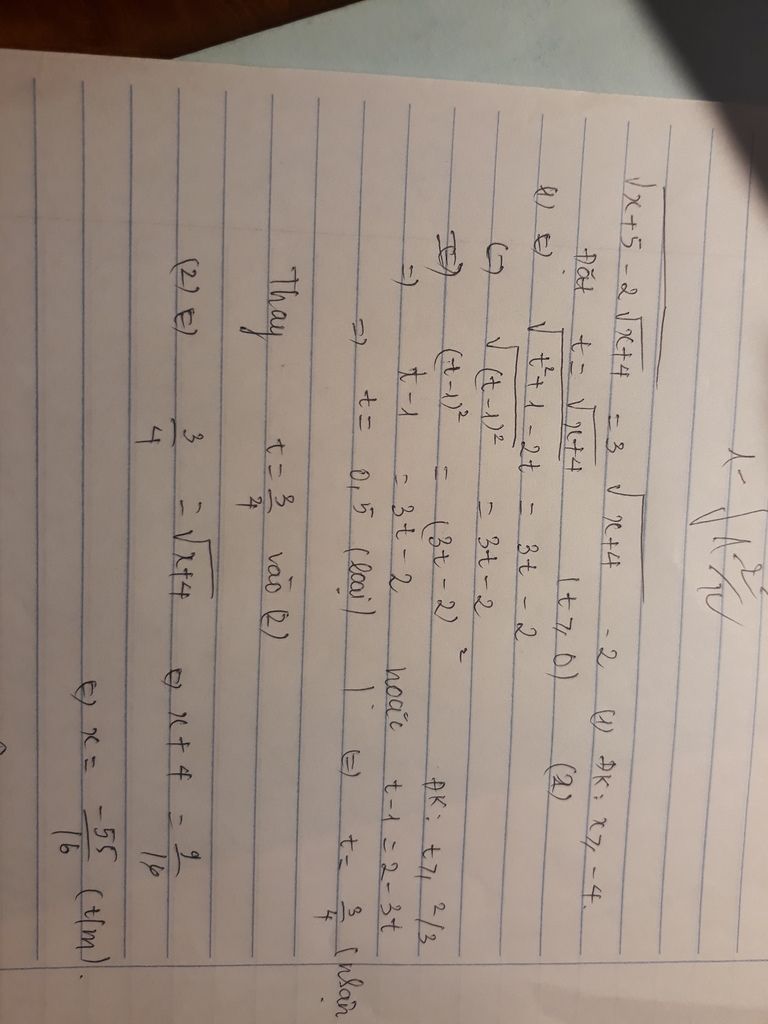 √(x+5-2√(x+4)) = 3√(x+4) - 2 (1) ĐK: x ⩾ -4.
Đặt t = √(x+4) (t ⩾ 0) (2)
(1) (=) √(t²+1-2t) = 3t - 2
(=) √((t-1)²) = 3t - 2
(=) (t-1)² = (3t-2)² ĐK: t ⩾ 2/3
=) t-1 = 3t-2 hoặc t-1 = 2-3t
=) t = 0,5 (loại) | (=) t = 3/4 (nhận
Thay t = 3/4 vào (2)
(2) (=) 3/4 = √(x+4) (=) x+4 = 9/16
(=) x = -55/16 (t/m).